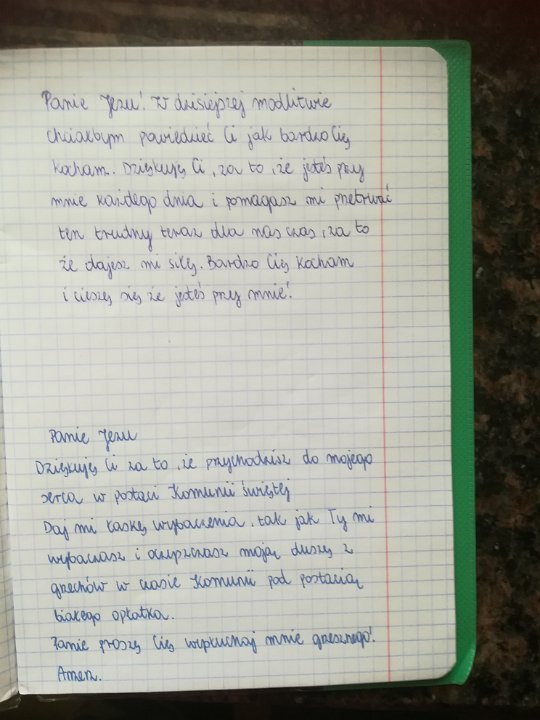 Panie Jezu! W dzisiejszej modlitwie
chciałbym powiedzieć Ci jak bardzo Cię
kocham. Dziękuję Ci, za to, że jesteś przy
mnie każdego dnia i pomagasz mi przetrwać
ten trudny teraz dla nas czas, za to
że dajesz mi siłę. Bardzo Cię kocham
i cieszę się że jesteś przy mnie!
Panie Jezu
Dziękuję Ci za to, że przychodzisz do mojego
serca w postaci Komunii świętej
Daj mi łaskę wybaczenia, tak jak Ty mi
wybaczasz i oczyszczasz moją duszę z
grzechów w czasie Komunii pod postacią
białego opłatka.
Panie proszę Cię wysłuchaj mnie grzesznego!
Amen.